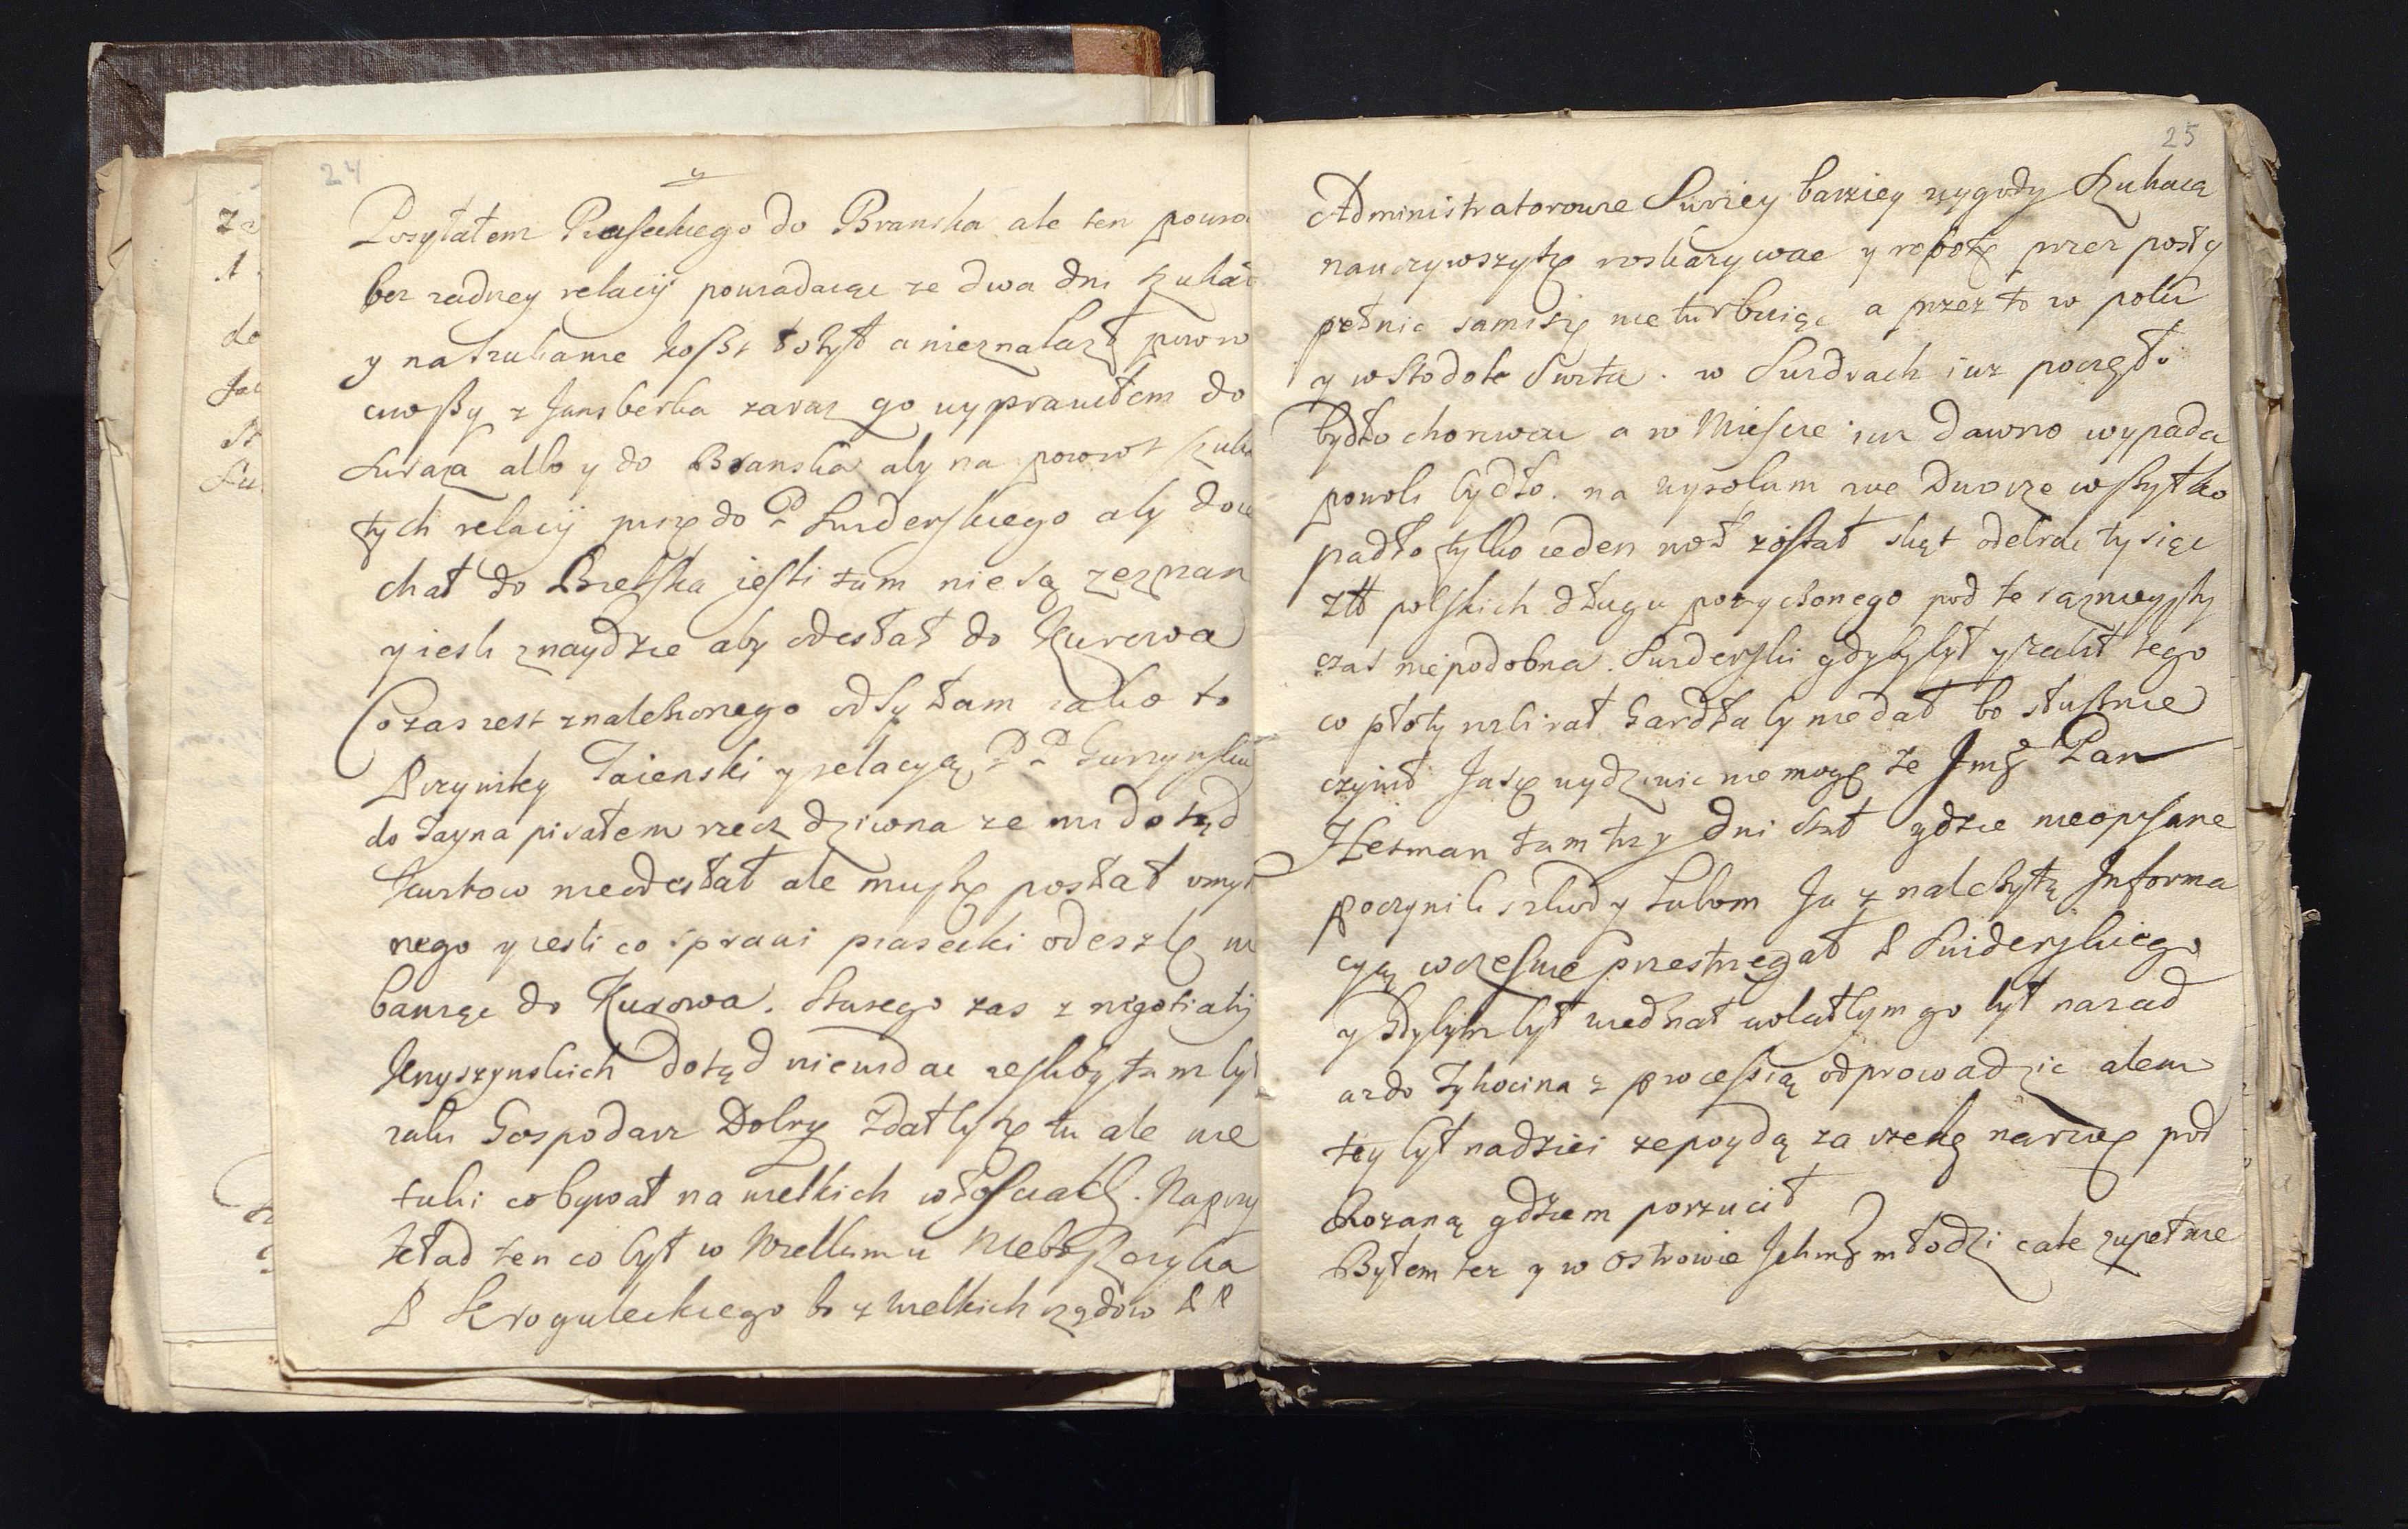 24
Posyłałem Piaseckiego do Branska ale ten powro
bez zadney relacij powiadaiąc ze dwa dni szukał
y na szukanie koszt łożył a nieznalazł powro
ciwszy z Jansberka zaraz go wyprawiłem do
Suraża albo y do Branska aby na powrot szuka
tych relacij piszę do P Suiderskiego aby doie
chał do Bielska iesli tam nie są zeznan
y iesli znaydzie aby odesłał do Kurowa
Co zas iest znalezionego odsyłam iako to
Przyniky Taienski y relacyą P P Gurzynskie
do Tayna pisałem rzecz dziwna ze mi dotąd
Kurkow nieodesłał ale muszę posłać umyśl
nego y iesli co sprawi piasecki odeszlę nie
bawiąc do Kurowa. Starego zas z negotiatij
Knyszynskich dotąd niewidac iesliby tam był
taki Gospodarz Dobry Zdałby się tu ale nie
taki co bywał na wielkich włosciach. Naprzy
kład ten co był w Wielkim u Nieboszczyka
P Kroguleckiego bo z wielkich rządow PP
25
Administratorowie Surzey barziey wygody szukaią
nauczywszy się roskazywac y robotę przez posły
pełnic sami się nie turbuiąc a przez to w polu
y w stodole Swita. w Surdrach iuz poczęło
bydło chorowac a w Miescie iuz dawno wypada
powoli bydło. na wysokim we Dworze wszytko
padło tylko ieden woł został skąt odebrac tysiąc
złł polskich długu pozyczonego pod te
czas niepodobna. Suiderski gdyby był y zabił tego
co płoty rozbirał Gardła by nie dał bo słusznie
czynił Ja się wydziwic nie mogę ze Jmę Pan
Hetman tam trzy dni stał gdzie nieopisane
poczynili szkody lubom Ja z nalezytą Informa
cyą wczesnie przestrzegał P Suiderskiego
y Gdybym był wiedział wolałbym go był nazad
az do Tykocina z processią odprowadzic alem
tey był nadziei ze poydą za rzekę narwię pod
Rozaną gdziem porzucił
Byłem tez y w Ostrowie Jchmę młodzi cale zupełnie